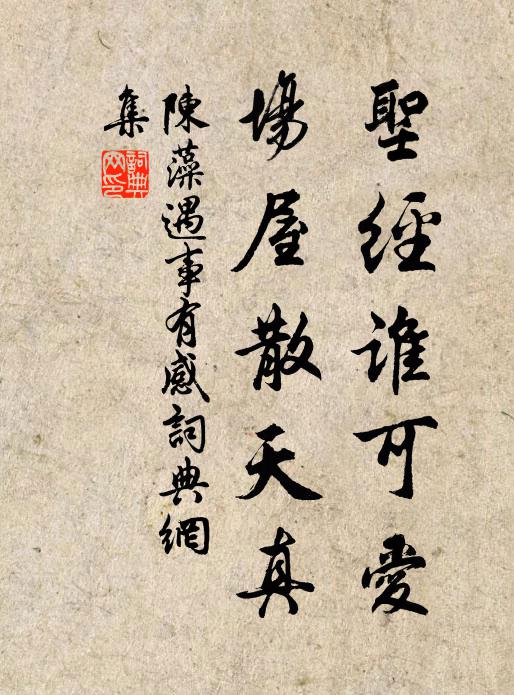 聖經誰可愛
場屋散天真
陳藻遇事有感詞典網
集
詞典網印